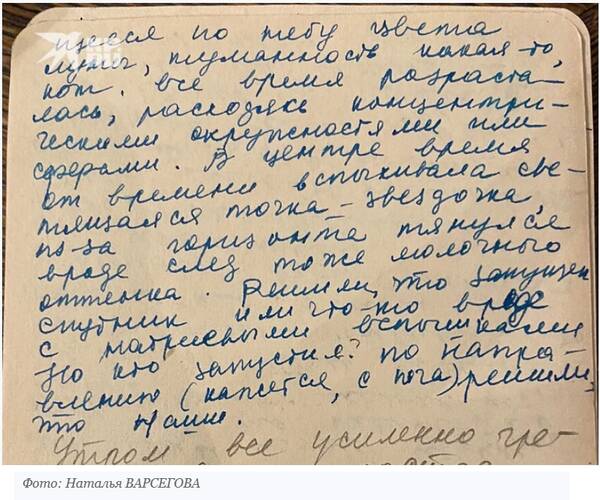 щееся по небу цвета
луны, туманность какая-то,
кот. все время разраста-
лась, расходясь концентри-
ческими окружностями или
сферами. В центре время
от времени вспыхивала све-
тящаяся точка - звездочка,
из-за горизонта тянулся
вроде след тоже молочного
оттенка. Решили, что запущен
спутник или что-то вроде
с натриевыми вспышками
Но кто запустил? по напра-
влению (кажется, с юга) решили,
что наши.
Утром все усиленно гре-
Фото: Наталья ВАРСЕГОВА